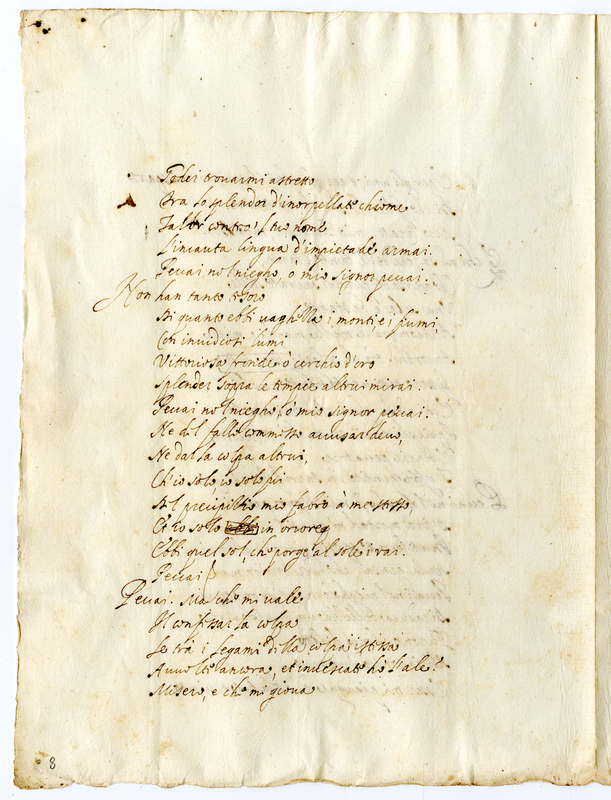 Godei trovarmi astretto
Tra lo splendor d'inorpellate chiome
Talor contro 'l tuo nome
L'incauta lingua d'impietade armai.
Peccai no 'l niegho, ò mio signor peccai.
Non han tanto tesoro
Di quanto ebbi vaghezza i monti, e i fiumi,
Con invidioti lumi
Vittoriosa fronde ò cerchio d'oro
Splender sopra le tempie altrui mirai.
Peccai no 'l niegho, ò mio signor peccai.
Ne del fallo commesso accusar devo,
Ne dalla colpa altrui,
Ch'io solo io solo fui
Del precipitio mio fabro à me stesso,
Ch'io solo in orrore
Ebbi quel sol, che porge al sole i rai.
Peccai
Peccai. Ma che mi vale
Il confessar la colpa
Se trà i legami della colpa istessa
Avvolte ancora, et invescate hò l'ale?
Misero, e che mi giova
8